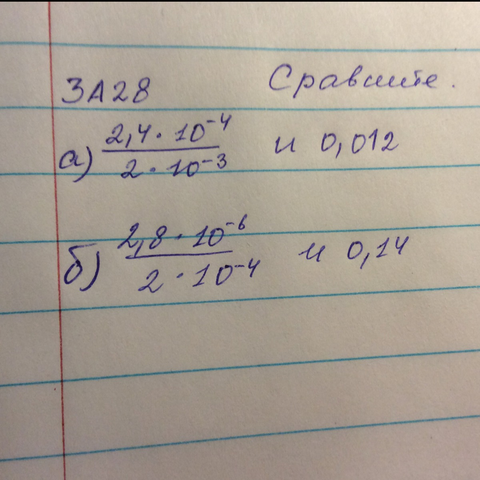 3А28 Сравните.
а) 2,4 · 10⁻⁴ / 2 · 10⁻³ и 0,012
б) 2,8 · 10⁻⁶ / 2 · 10⁻⁴ и 0,14